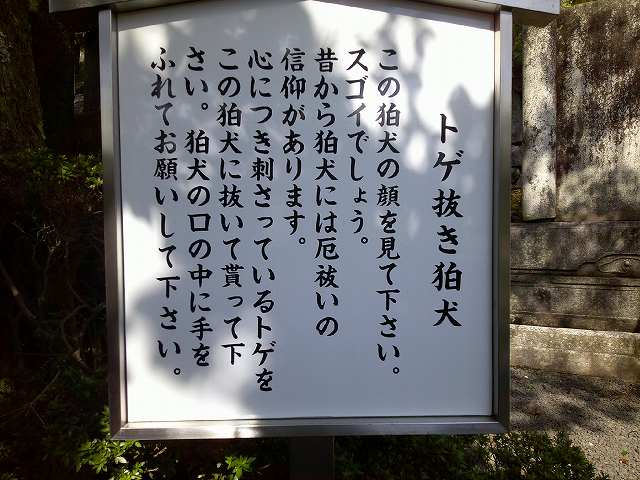 トゲ抜き狛犬
この狛犬の顔を見て下さい。
スゴイでしょう。
昔から狛犬には厄祓いの
信仰があります。
心につき刺さっているトゲを
この狛犬に抜いて貰って下
さい。狛犬の口の中に手を
ふれてお願いして下さい。